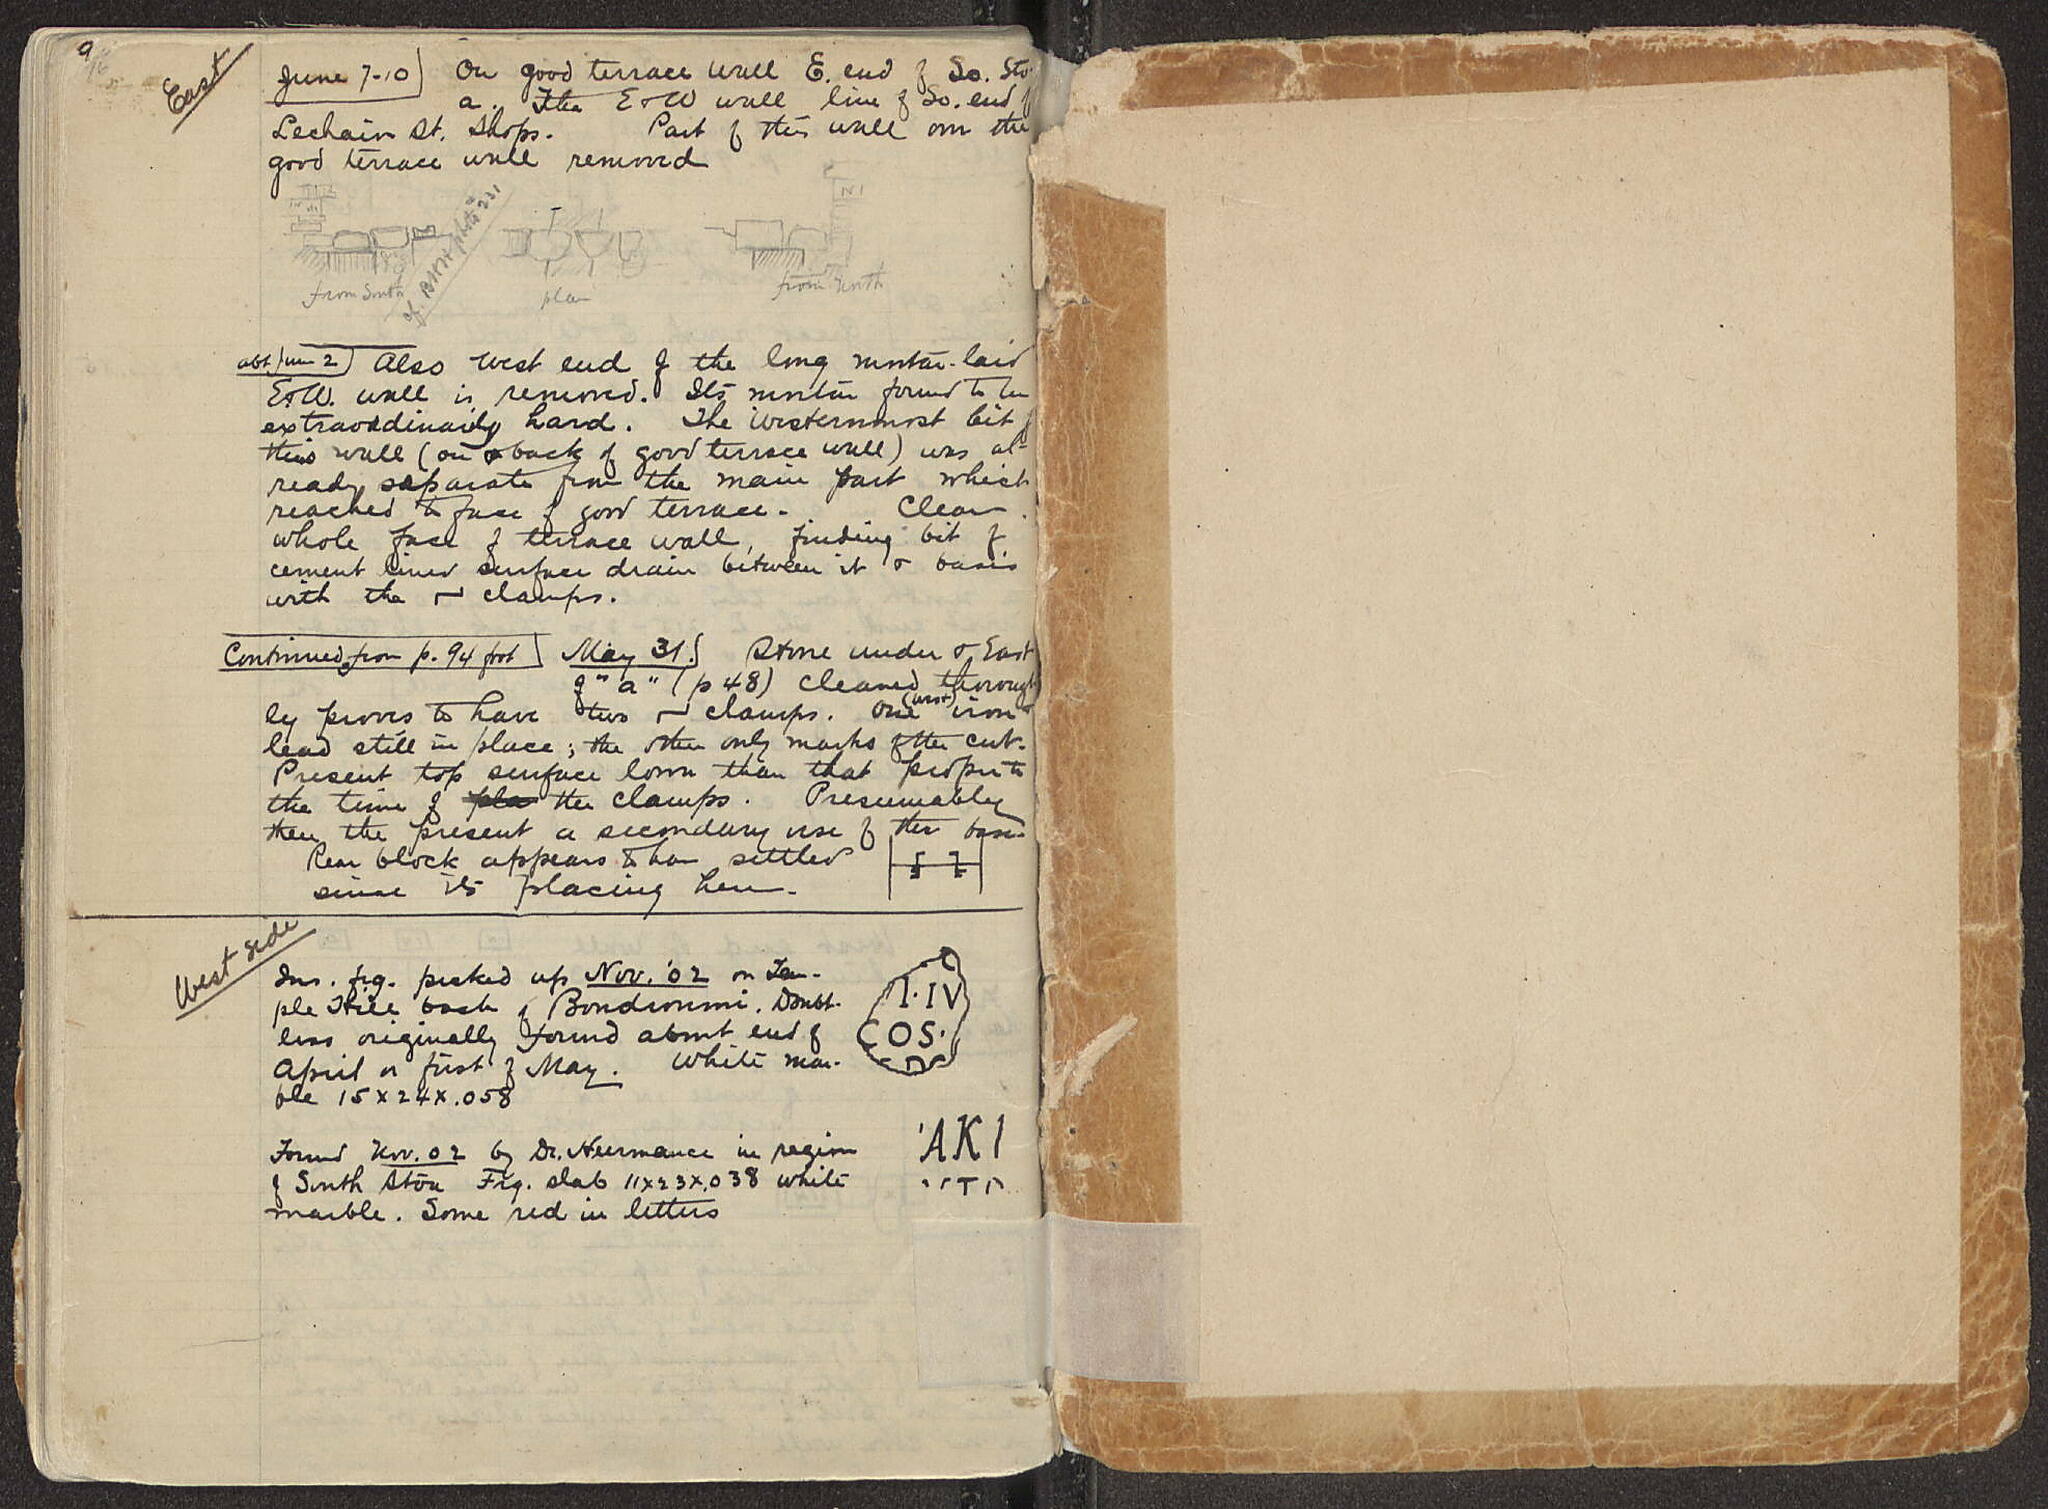 9
East
June 7-10) On good terrace wall E. end of So. Sto-
a. The E & W wall line of So. end of
Lechaion St. Shops. Part of this wall over the
good terrace wall removed
from South
cf. photo 231
plan
from North
abt. June 2) Also West end of the long mortar-laid
E & W. wall is removed. Its mortar found to be
extraordinarily hard. The Westernmost bit of
this wall (on back of good terrace wall) was al-
ready separate from the main part which
reached to face of good terrace. Clear
whole face of terrace wall, finding bit of
cement lined surface drain between it & basis
with the clamps.
Continued from p. 94 foot) May 31.) Stone under & East
of "a" (p 48) cleaned thorough-
ly proves to have two clamps. One (west) iron &
lead still in place; the other only marks of the cut.
Present top surface lower than that proper to
the time of the clamps. Presumably
then the present a secondary use of the base.
Rear block appears to have settled
since its placing here.
West side
Ins. frg. picked up Nov. '02 on Tem-
ple Hill back of Bondrouni. Doubt-
less originally found about end of
April or first of May. White mar-
ble 15 x 24 x .058
I·IV
COS·
Found Nov. 02 by Dr. Heermance in region
of South Stoa Frg. slab 11 x 23 x .038 white
marble. Some red in letters
AKI